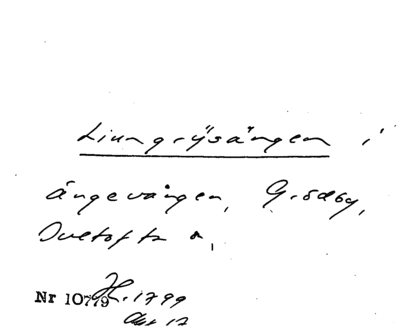 Liungrysängen i
ängevången, Grödby,
Duetofta
Nr 10779 H. 1799
Akt 12